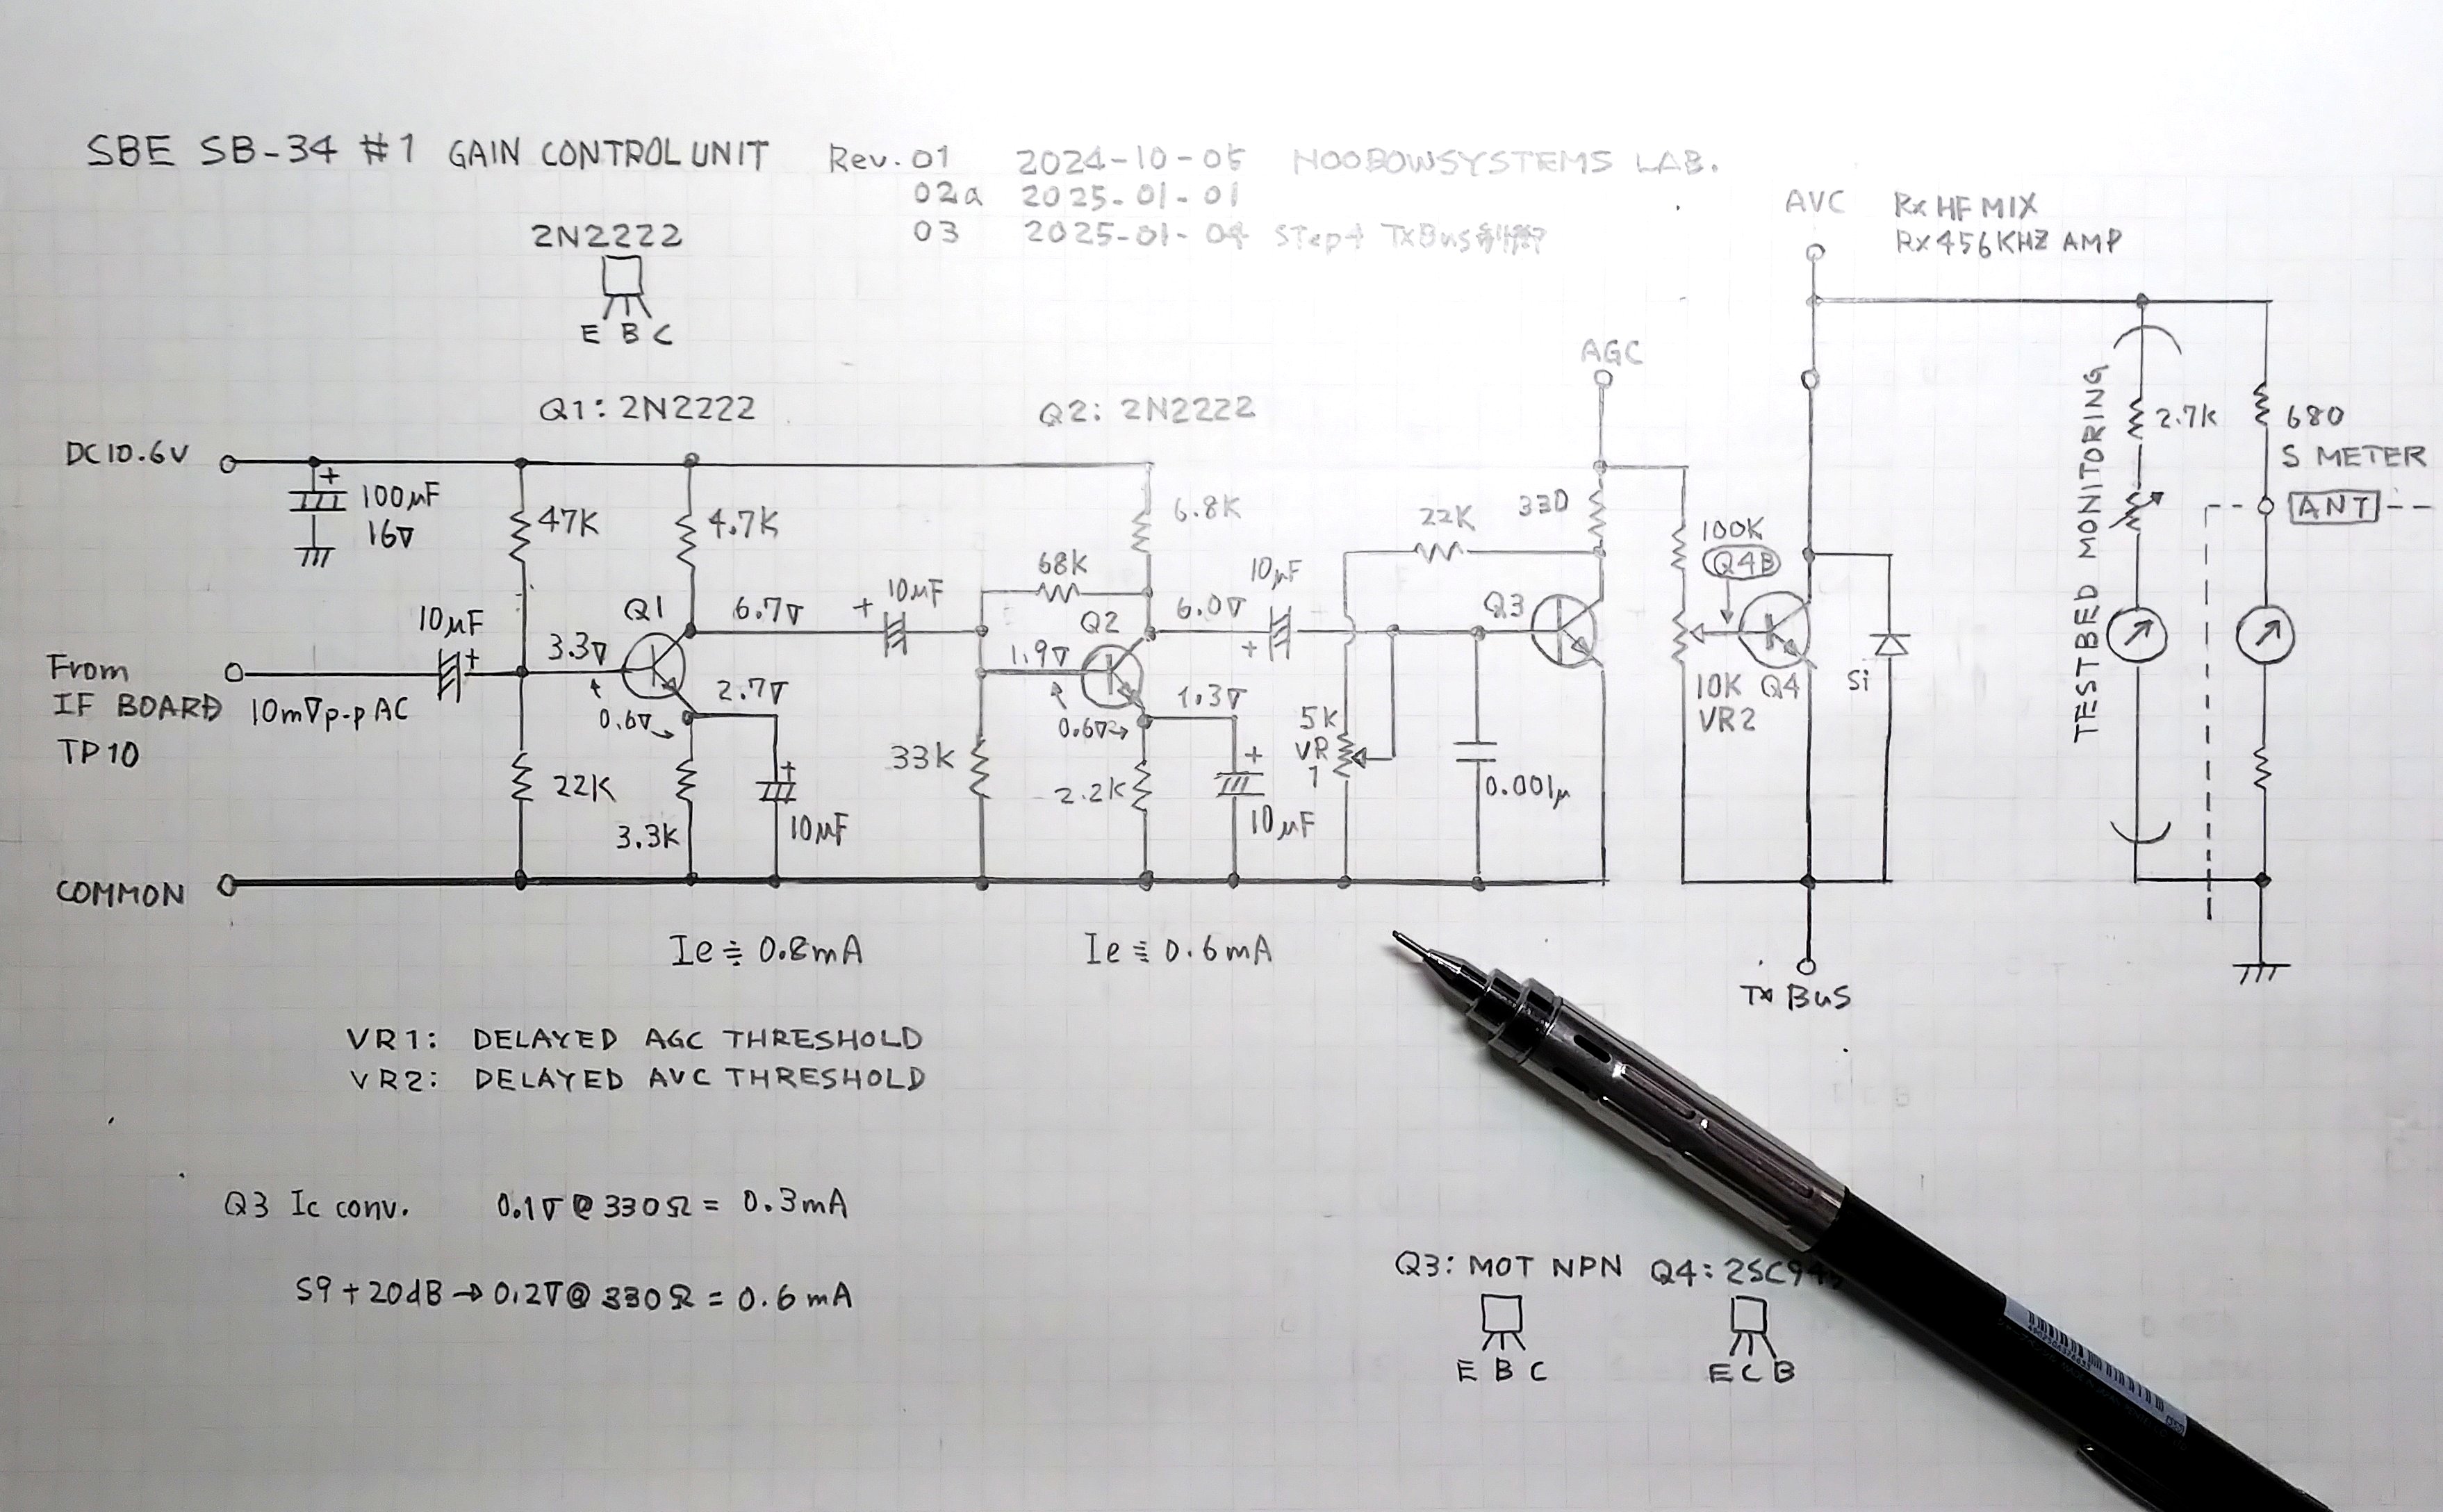 SBE SB-34 #1 GAIN CONTROL UNIT Rev. 01 2024-10-05 NOOBOWSYSTEMS LAB.
02a 2025-01-01
03 2025-01-04 Step4 TxBus
AVC Rx HF MIX
Rx 456KHZ AMP
2N2222
E B C
AGC
Q1: 2N2222
Q2: 2N2222
DC10.6V
+
100μF
16V
47K
4.7K
6.8K
22K
330
100K
Q4B
2.7K
680
S METER
ANT
TESTBED MONITORING
68K
10μF
+
Q1
6.7V
+
10μF
Q2
6.0V
10μF
+
Q3
From
IF BOARD
TP10
10mVp-p AC
3.3V
0.6V
2.7V
1.9V
0.6V
1.3V
5K
VR
1
10K Q4
VR2
Si
22K
3.3K
+
10μF
33K
2.2K
+
10μF
0.001μ
COMMON
Ie ≒ 0.8mA
Ie ≒ 0.6mA
Tx Bus
VR1: DELAYED AGC THRESHOLD
VR2: DELAYED AVC THRESHOLD
Q3 Ic conv. 0.1V @ 330Ω = 0.3mA
S9+20dB → 0.2V @ 330Ω = 0.6mA
Q3: MOT NPN Q4:
E B C
E C B